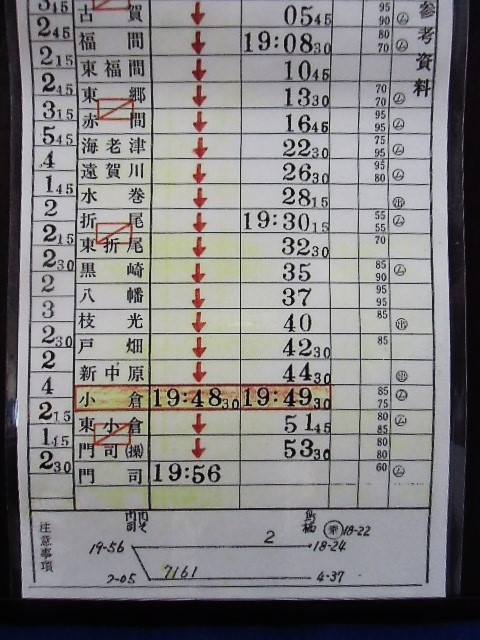 3 15 古賀 ↓ 05 45 95 90 ㋰ 参考資料
2 45 福間 ↓ 19:08 30 80 70 ㋰
2 15 東福間 ↓ 10 45
2 45 東郷 ↓ 13 30 70 70 ㋰
3 15 赤間 ↓ 16 45 95 95 ㋰
5 45 海老津 ↓ 22 30 75 95 ㋰
4 遠賀川 ↓ 26 30 95 80 ㋰
1 45 水巻 ↓ 28 15
2 折尾 ↓ 19:30 15 55 55 ㋰
2 15 東折尾 ↓ 32 30 70
2 30 黒崎 ↓ 35 85 90 ㋰
2 八幡 ↓ 37 95 95
3 枝光 ↓ 40 85
2 30 戸畑 ↓ 42 30 85
2 新中原 ↓ 44 30
4 小倉 19:48 30 19:49 30 85 75 ㋰
2 15 東小倉 ↓ 51 45 80 85 ㋰
1 45 門司(操) ↓ 53 30 80 80
2 30 門司 19:56 60 ㋰
注意事項
門司 鳥栖 ㊄18-22
19-56 2 18-24
2-05 7161 4-37